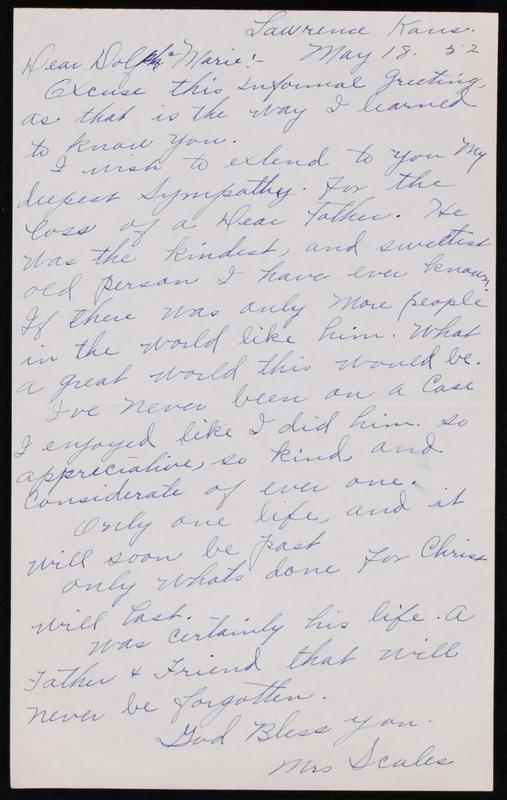 Lawrence Kans.
May 18. 52
Dear Dolph & Marie:-
Excuse this informal greeting,
as that is the way I learned
to know you.
I wish to extend to you My
deepest Sympathy. For the
loss of a Dear Father. He
was the kindest, and sweetest
old person I have ever known.
If there was only More people
in the world like him. What
a great world this would be.
I've never been on a Case
I enjoyed like I did him. so
appreciative, so kind, and
Considerate of ever one.
Only one life, and it
will soon be past
only whats done for Christ
will last.
Was certainly his life. A
Father & Friend that will
never be forgotten.
God Bless you.
Mrs Scales